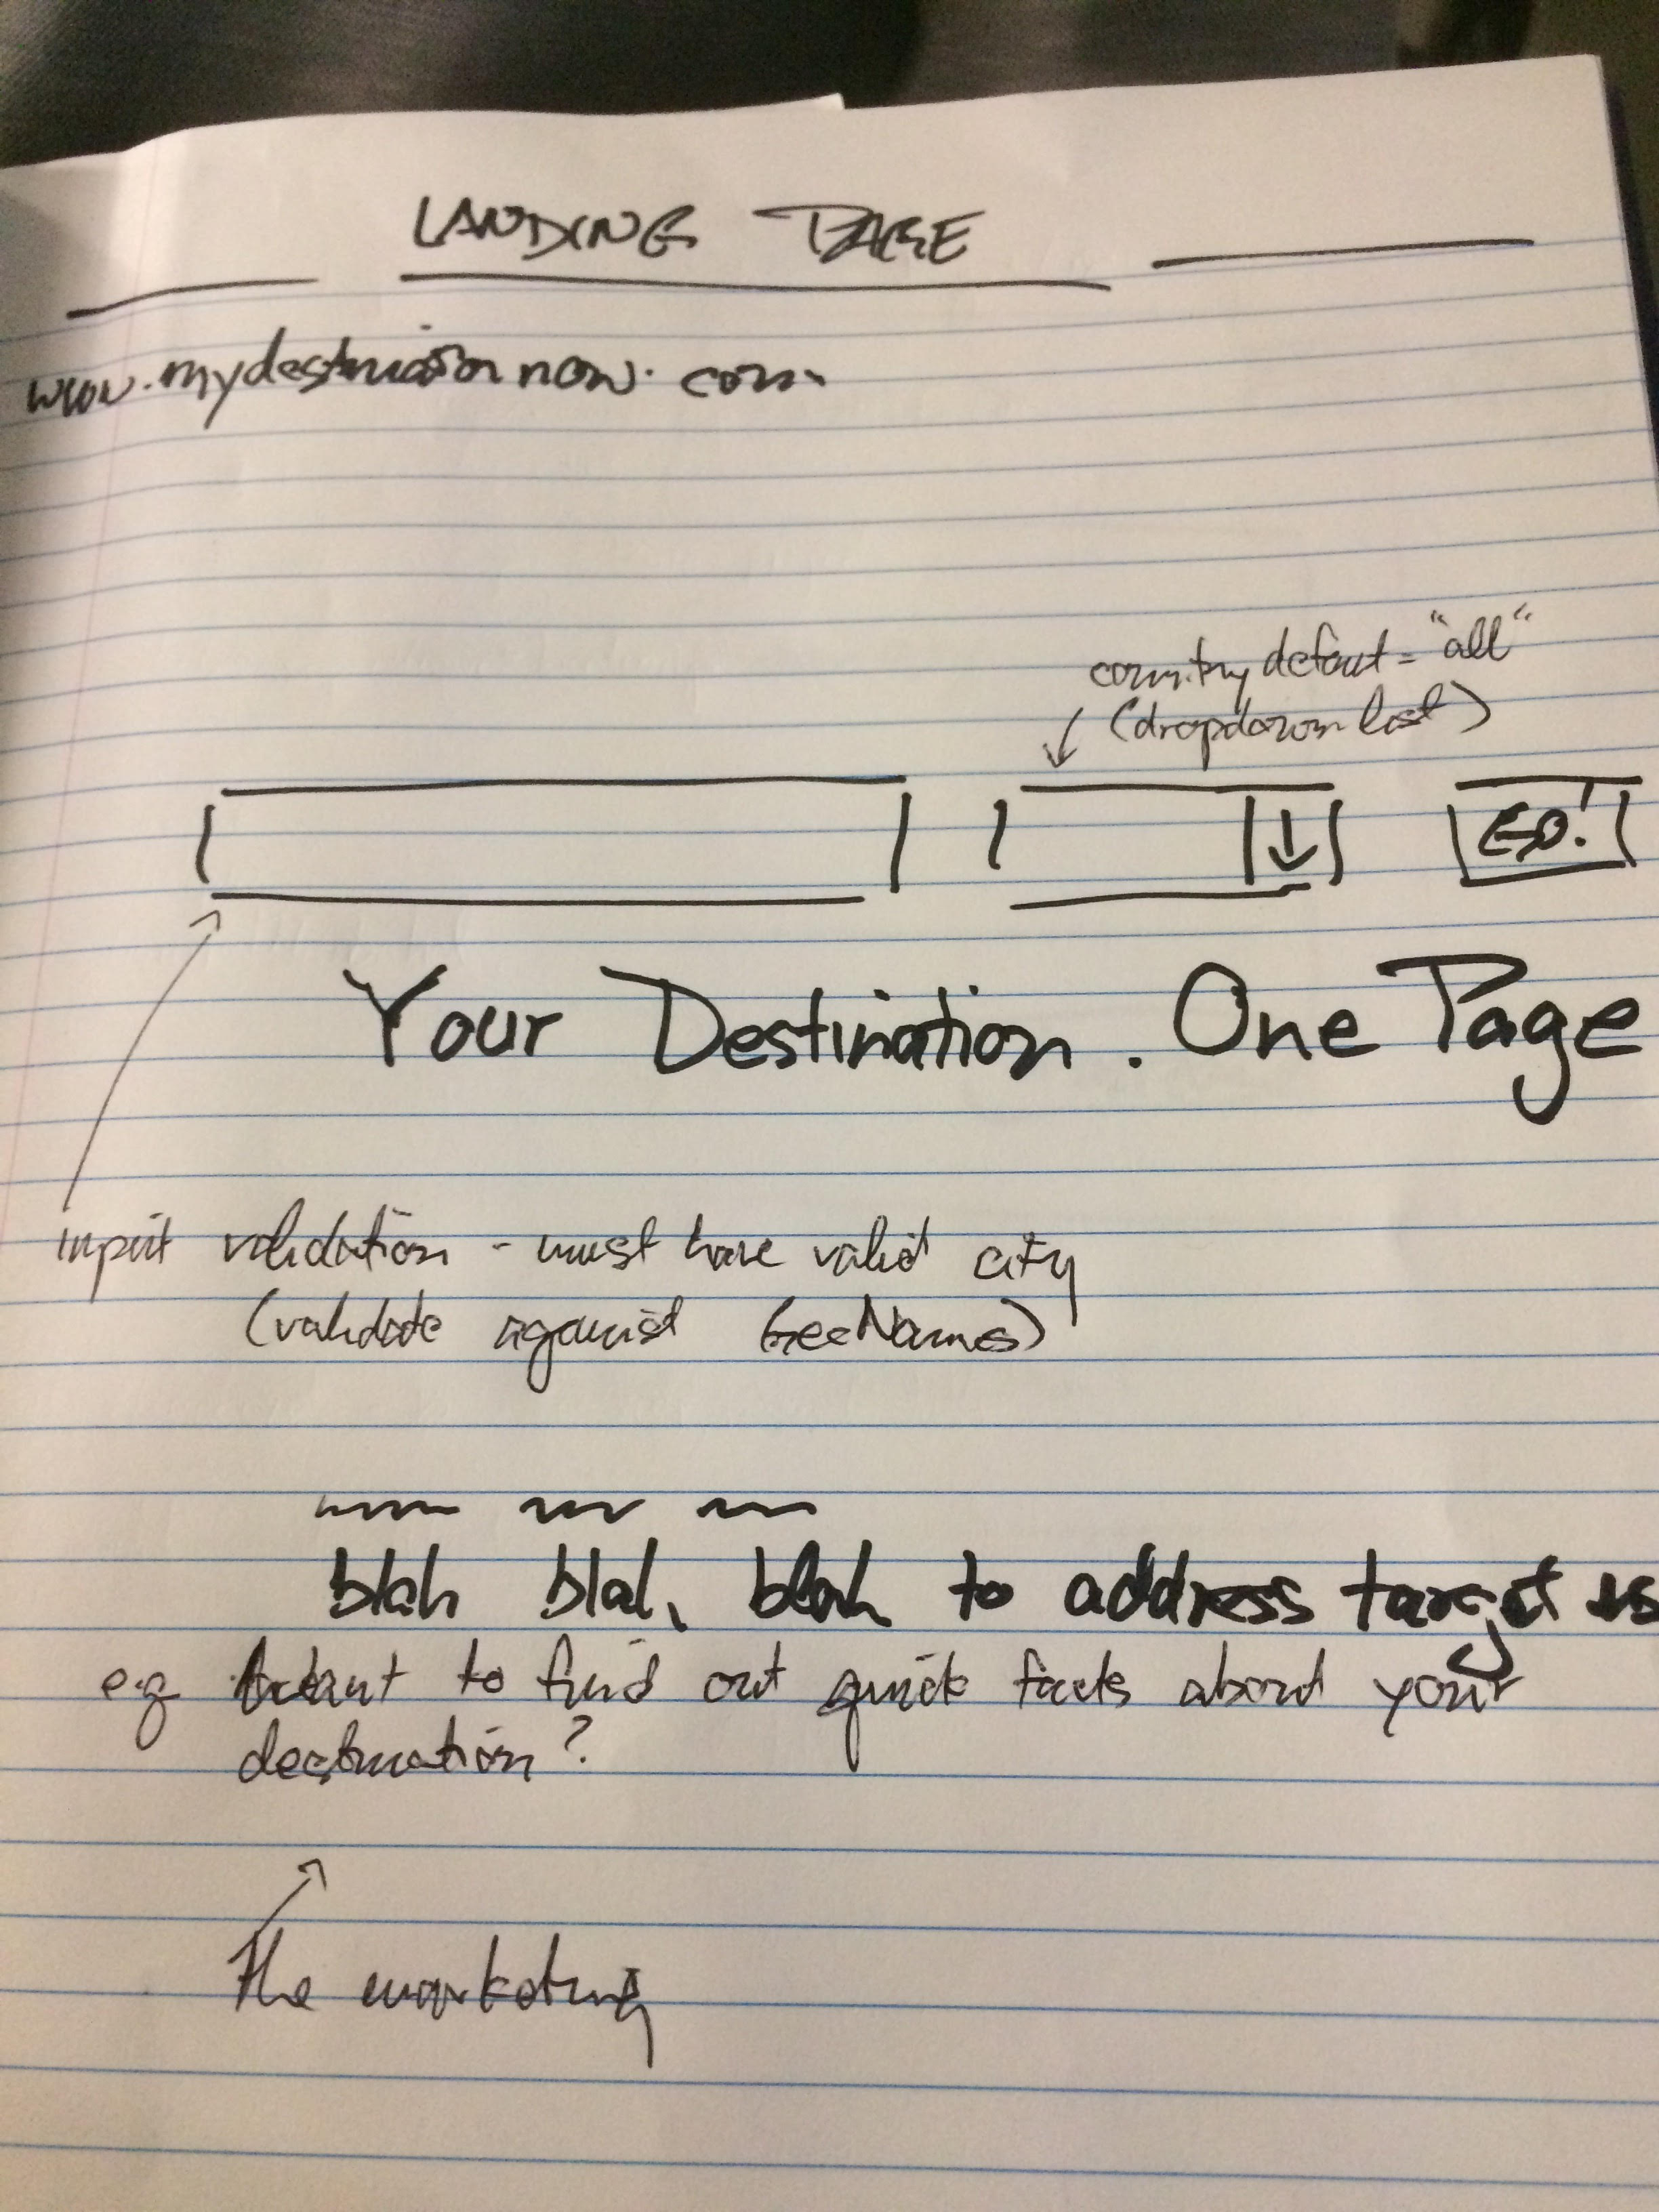 LANDING PAGE
www.mydestinationnow.com
country default = "all"
(dropdown list)
GO!
Your Destination. One Page
input validation - must have valid city
(validate against GeoNames)
blah blah blah to address target
e.g. Want to find out quick facts about your
destination?
the marketing